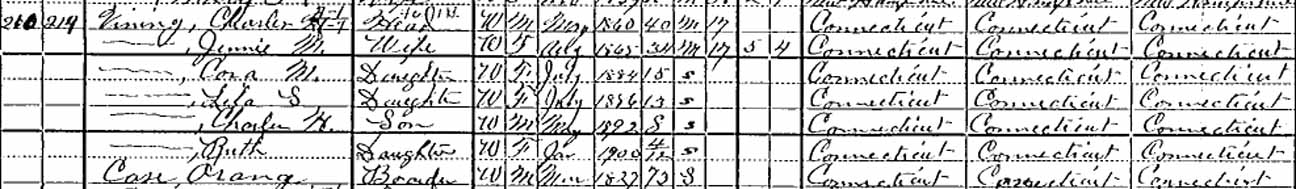 210 214 Vining, Charles Head W M May 1860 40 M 17 Connecticut Connecticut Connecticut
——, Jennie M. Wife W F 1865 34 M 17 5 4 Connecticut Connecticut Connecticut
——, Cora M. Daughter W F July 1884 15 S Connecticut Connecticut Connecticut
——, S. Daughter W F July 1886 13 S Connecticut Connecticut Connecticut
——, Charles H. Son W M May 1892 8 S Connecticut Connecticut Connecticut
——, Ruth Daughter W F Jan 1900 4/12 S Connecticut Connecticut Connecticut
Case, Orange Boarder W M Mar 1827 73 S Connecticut Connecticut Connecticut